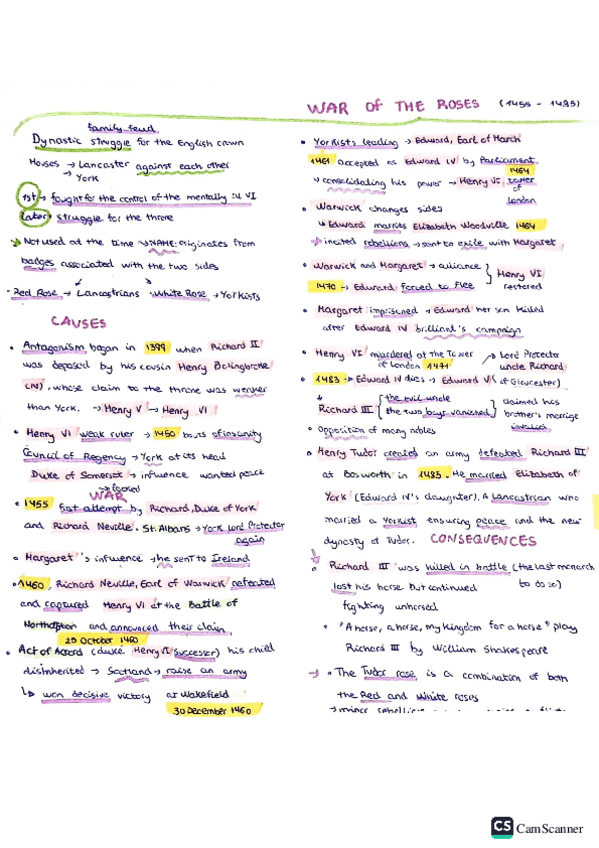 WAR OF THE ROSES (1455 - 1485)
family feud
Dynastic struggle for the English crown
Houses → Lancaster against each other
→ York
1st → fought for the control of the mentally ill VI
later struggle for the throne
Not used at the time → NAME: originates from
badges associated with the two sides
Red Rose → Lancastrians · White Rose → Yorkists
CAUSES
• Antagonism began in 1399 when Richard II
was deposed by his cousin Henry Bolingbroke
(IV), whose claim to the throne was weaker
than York. → Henry V → Henry VI
• Henry VI weak ruler → 1450 bouts of insanity
Council of Regency → York at its head
Duke of Somerset → influence wanted peace
WAR
• 1455 first attempt by Richard, Duke of York
and Richard Neville. St. Albans → York Lord Protector
again
• Margaret's influence → he sent to Ireland
• 1460, Richard Neville, Earl of Warwick defeated
and captured Henry VI at the Battle of
Northampton and announced their claim
25 October 1460
• Act of Accord (duke Henry IV successor) his child
disinherited → Scotland → raise an army
↳ won decisive victory at Wakefield
30 December 1460
• Yorkists leading → Edward, Earl of March
1461 accepted as Edward IV by Parliament
1464
→ consolidating his power → Henry VI tower
of
London
• Warwick changes sides
↳ Edward marries Elizabeth Woodville 1464
incited rebellions → sent to exile with Margaret
• Warwick and Margaret → alliance } Henry VI
1470 → Edward forced to flee restored
• Margaret imprisoned → Edward her son killed
after Edward IV brilliant's campaign
• Henry VI murdered at the Tower → Lord Protector
of London 1471 uncle Richard
• 1483 → Edward IV dies → Edward V (of Gloucester)
↓ the evil uncle claimed his
Richard III { the two boys vanished } brother's marrige
• Opposition of many nobles invalid
• Henry Tudor created an army defeated Richard III
at Bosworth in 1485. He married Elizabeth of
York (Edward IV's daughter). A Lancastrian who
married a Yorkist ensuring peace and the new
dynasty of Tudor. CONSEQUENCES
• Richard III was killed in battle (the last monarch
lost his horse but continued to do so)
fighting unhorsed
• "A horse, a horse, my kingdom for a horse" play
Richard III by William Shakespeare
→ • The Tudor rose is a combination of both
the Red and White roses
→ minor rebellions
CS CamScanner